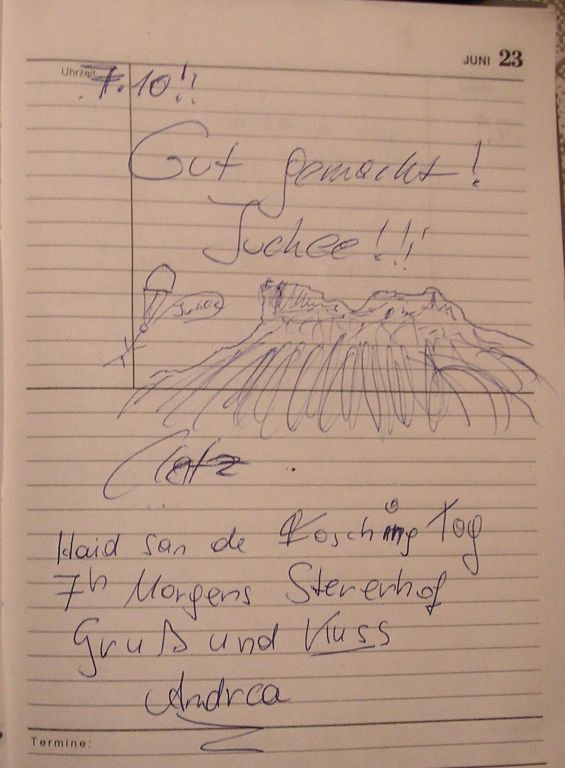 JUNI 23
Uhrzeit
7.10!!
Gut gemacht!
Juchee!!!
Juhee
Haid san de Kosching Tog
7h Morgens Stererhof
Gruß und Kuss
Andrea
Termine: